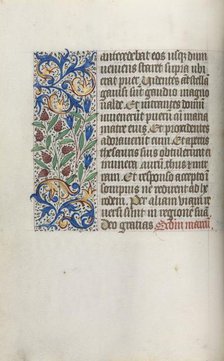 antecedebat eos usq dum
veniens staret supra ubi
erat puer Videntes aut stella
gavisi sunt gaudio magno
valde Et intrantes domu
invenerut pueru cum maria
matre eius Et procidentes
adoraverut eum Et apertis
thesauris suis obtulerut ei
munera auru thus et mir
ram Et responso accepto i
sompnis ne redirent ad he
rodem Per aliam viam re
versi sunt in regione sua
Deo gratias